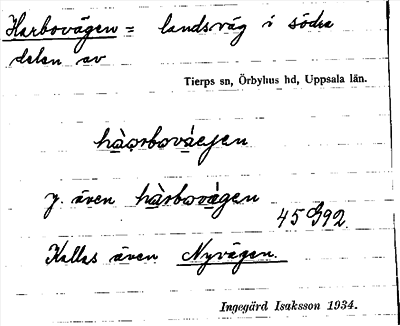 Harbovägen = landsväg i södra
delen av
Tierps sn, Örbyhus hd, Uppsala län.
hàorbovàejen
y. även hàrbovàgen
45 G92
Kallas även Nyvägen.
Ingegärd Isaksson 1934.